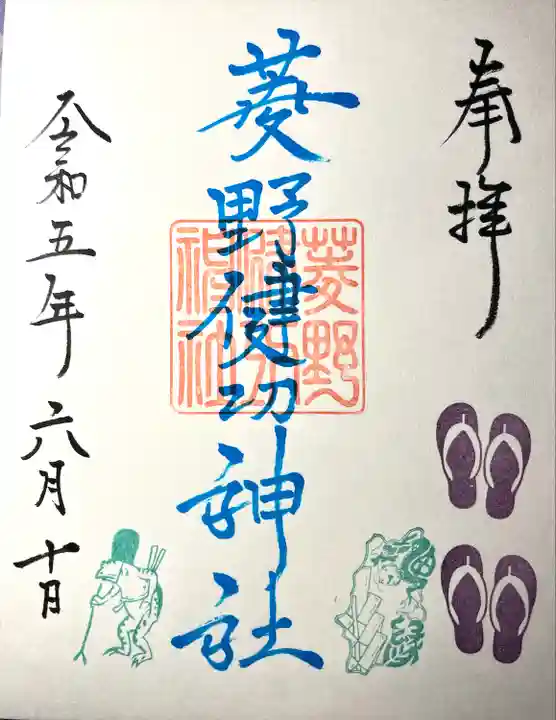 奉拝
菱野健功神社
令和五年六月十日
菱野
健功
神社